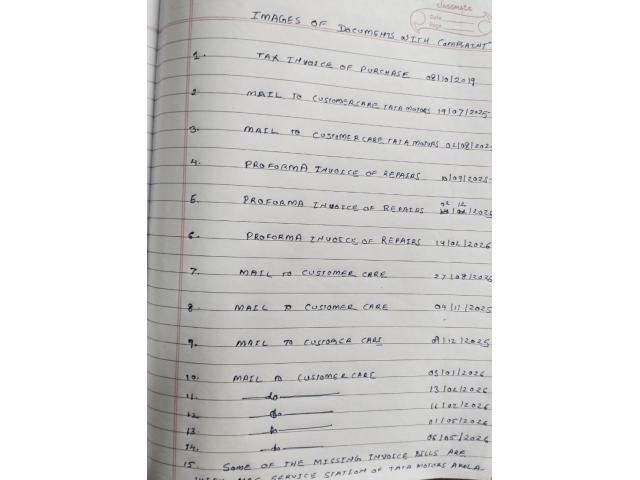 classmate
Date
Page
IMAGES OF DOCUMENTS WITH COMPLAINT
1. TAX INVOICE OF PURCHASE 08/10/2019
2 MAIL TO CUSTOMERCARE TATA MOTORS 19/07/2025
3. MAIL TO CUSTOMER CARE TATA MOTORS 02/08/202
4. PROFORMA INVOICE OF REPAIRS /07/2025
5. PROFORMA INVOICE OF REPAIRS 02 12 /2025
6 PROFORMA INVOICE OF REPAIRS 14/02/2026
7. MAIL TO CUSTOMER CARE 27/08/2025
8. MAIL TO CUSTOMER CARE 04/11/2025
9. MAIL TO CUSTOMER CARE /12/2025
10. MAIL TO CUSTOMER CARE 03/01/2026
11. do 13/02/2026
12. do 16/02/2026
13. do 01/05/2026
14. do 06/05/2026
15. SOME OF THE MISSING INVOICE BILLS ARE
SERVICE STATION OF TATA MOTORS